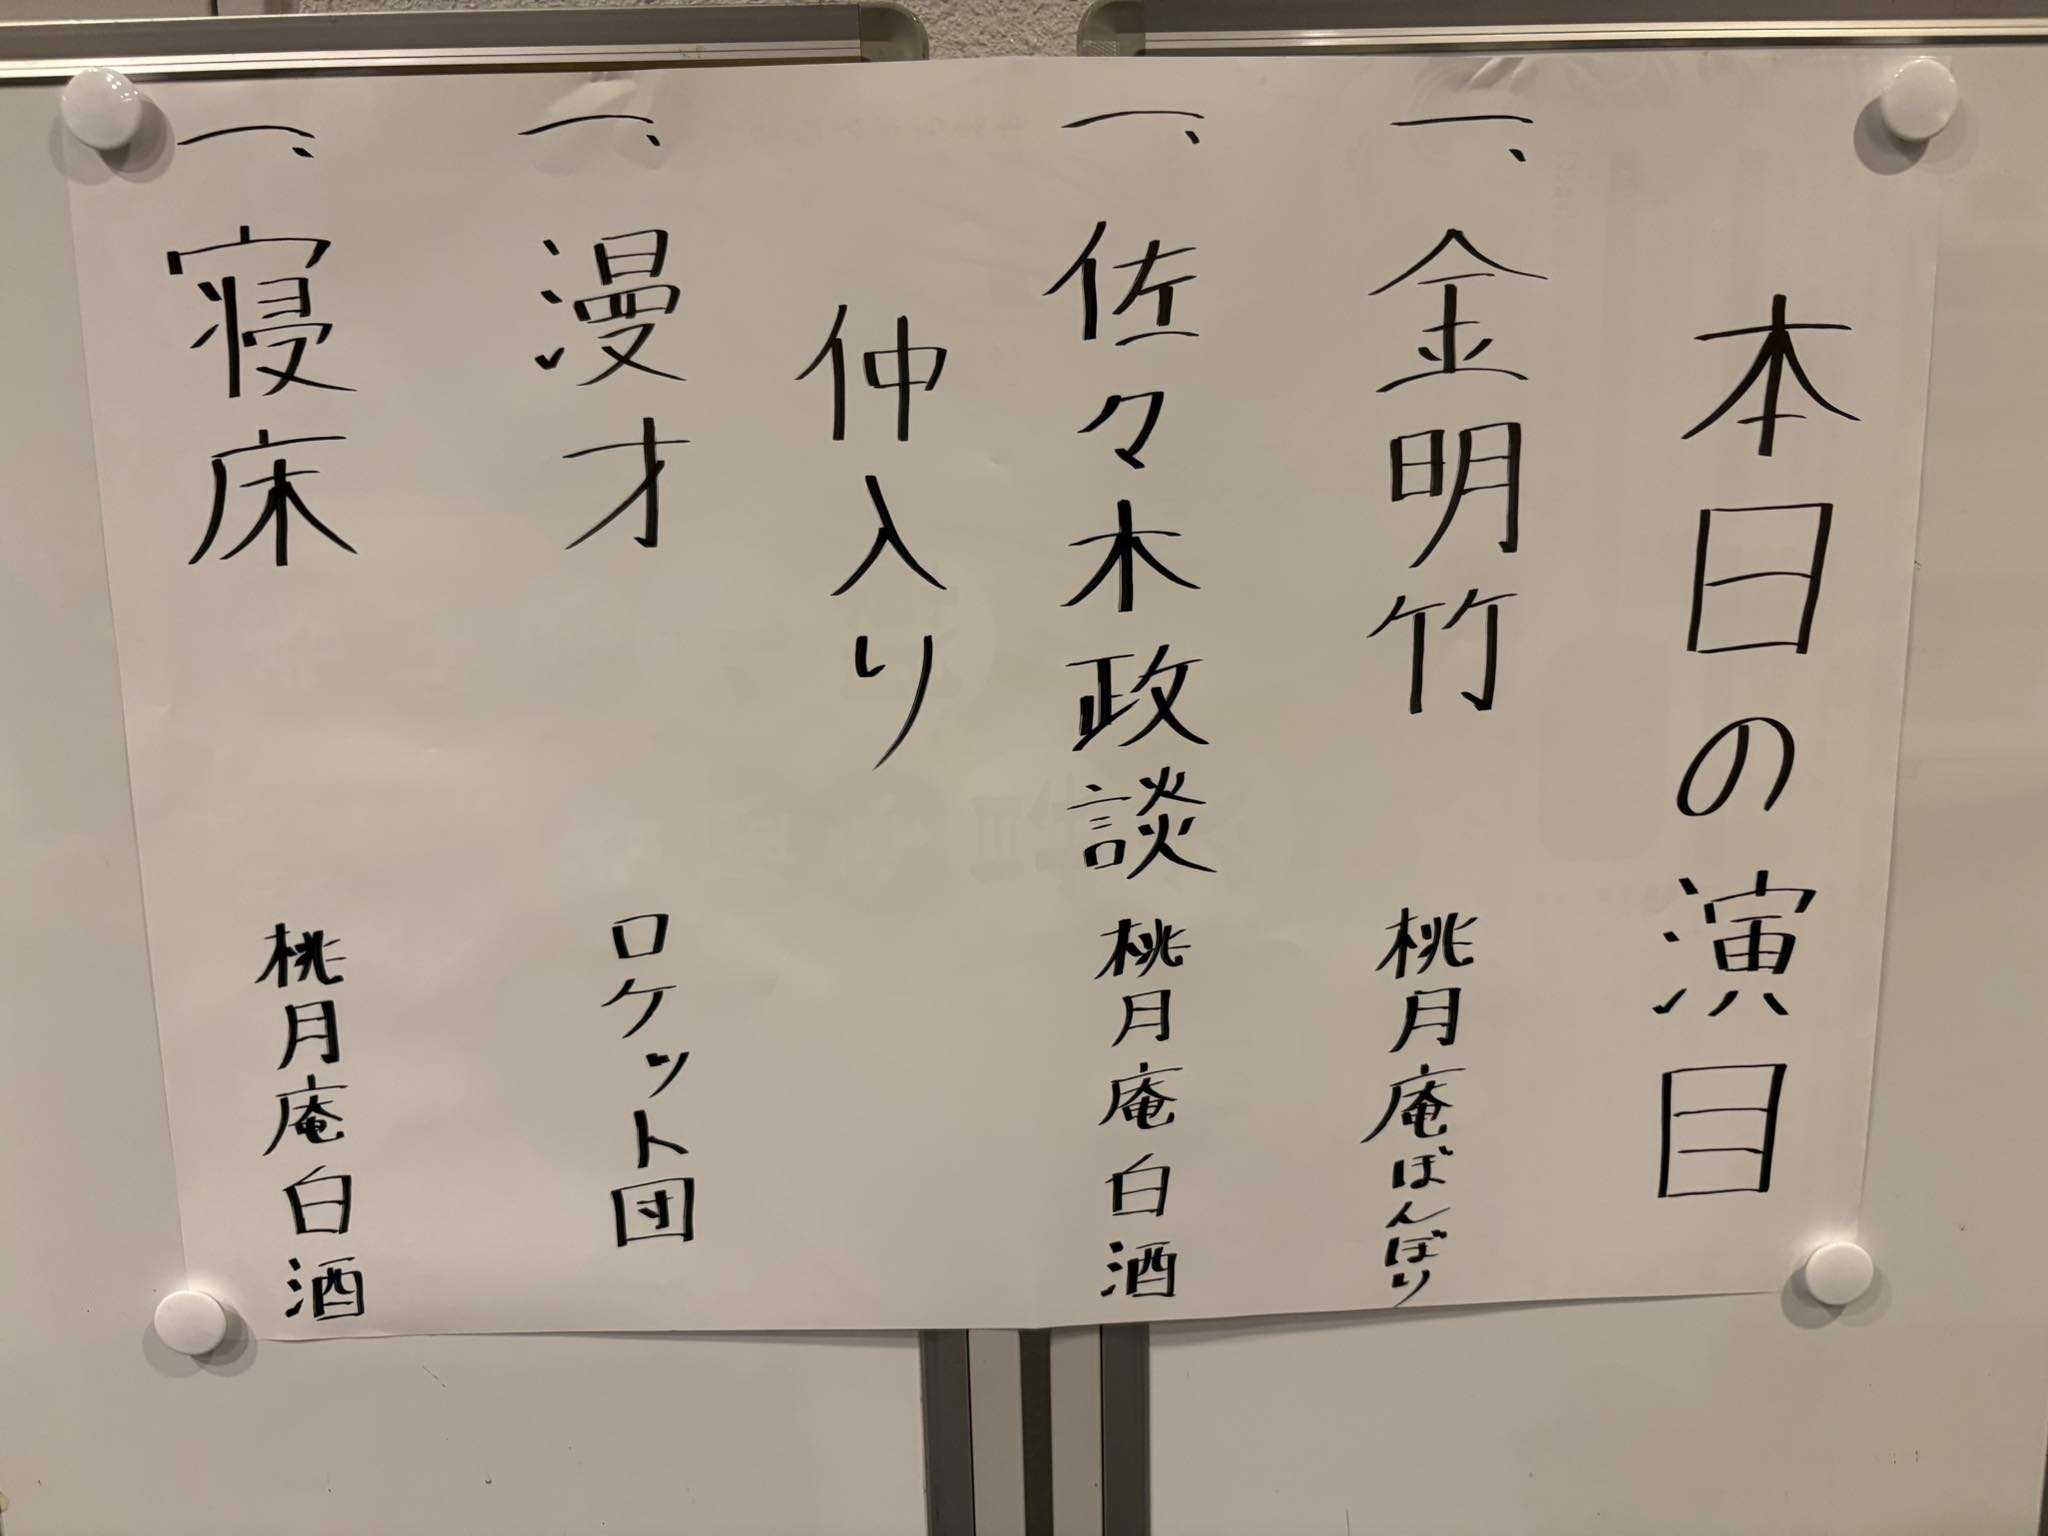 本日の演目
一、金明竹 桃月庵ぼんぼり
一、佐々木政談 桃月庵白酒
仲入り
一、漫才 ロケット団
一、寝床 桃月庵白酒